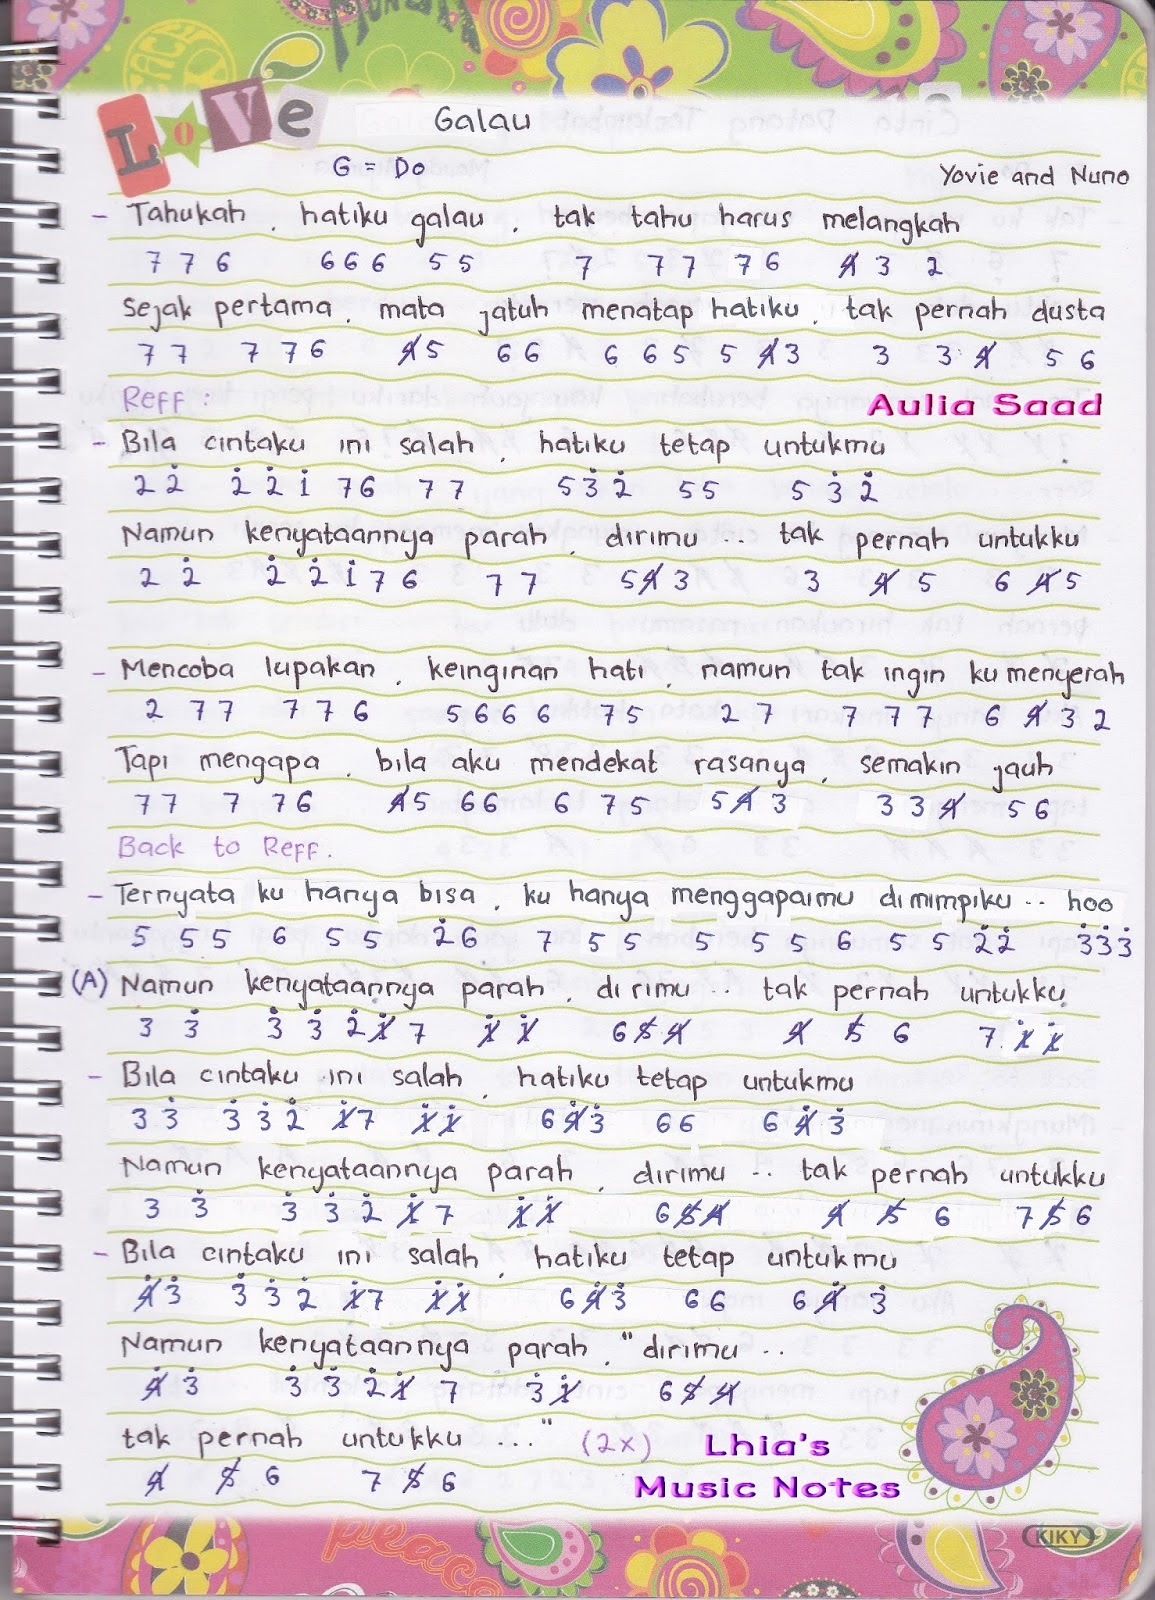 LOVE
Galau
G = Do
Yovie and Nuno
- Tahukah, hatiku galau, tak tahu harus melangkah
7 7 6 6 6 6 5 5 7 7 7 7 6 4̸ 3 2
Sejak pertama, mata jatuh menatap hatiku, tak pernah dusta
7 7 7 7 6 4̸ 5 6 6 6 6 5 5 4̸ 3 3 3 4̸ 5 6
Reff :
Aulia Saad
- Bila cintaku ini salah, hatiku tetap untukmu
2 2̇ 2̇ 2̇ 1̇ 7 6 7 7 5 3̇ 2̇ 5 5 5 3̇ 2̇
Namun kenyataannya parah, dirimu .. tak pernah untukku
2 2̇ 2̇ 2̇ 1̇ 7 6 7 7 5 4̸ 3 3 4̸ 5 6 4̸ 5
- Mencoba lupakan, keinginan hati, namun tak ingin ku menyerah
2 7 7 7 7 6 5 6 6 6 7 5 2 7 7 7 7 6 4̸ 3 2
Tapi mengapa, bila aku mendekat rasanya, semakin jauh
7 7 7 7 6 4̸ 5 6 6 6 7 5 5 4̸ 3 3 3 4̸ 5 6
Back to Reff.
- Ternyata ku hanya bisa, ku hanya menggapaimu dimimpiku .. hoo
5 5 5 6 5 5 2̇ 6 7 5 5 5 5 5 6 5 5 2̇ 2̇ 3̇ 3̇ 3̇
(A) Namun kenyataannya parah, dirimu .. tak pernah untukku
3 3̇ 3̇ 3̇ 2̇ 1̸̇ 7 1̸̇ 1̸̇ 6 5̸ 4̸ 4̸ 5̸ 6 7 1̸̇ 1̸̇
- Bila cintaku ini salah, hatiku tetap untukmu
3 3̇ 3̇ 3̇ 2̇ 1̸̇ 7 1̸̇ 1̸̇ 6 4̸̇ 3̇ 6 6 6 4̸̇ 3̇
Namun kenyataannya parah, dirimu .. tak pernah untukku
3 3̇ 3̇ 3̇ 2̇ 1̸̇ 7 1̸̇ 1̸̇ 6 5̸ 4̸ 4̸ 5̸ 6 7 5̸ 6
- Bila cintaku ini salah, hatiku tetap untukmu
4̸̇ 3̇ 3̇ 3̇ 2̇ 1̸̇ 7 1̸̇ 1̸̇ 6 4̸̇ 3̇ 6 6 6 4̸̇ 3̇
Namun kenyataannya parah, "dirimu ..
4̸̇ 3̇ 3̇ 3̇ 2̇ 1̸̇ 7 3̇ 1̸̇ 6 5̸ 4̸
tak pernah untukku ..." (2x)
4̸ 5̸ 6 7 5̸ 6
Lhia's
Music Notes
KIKY